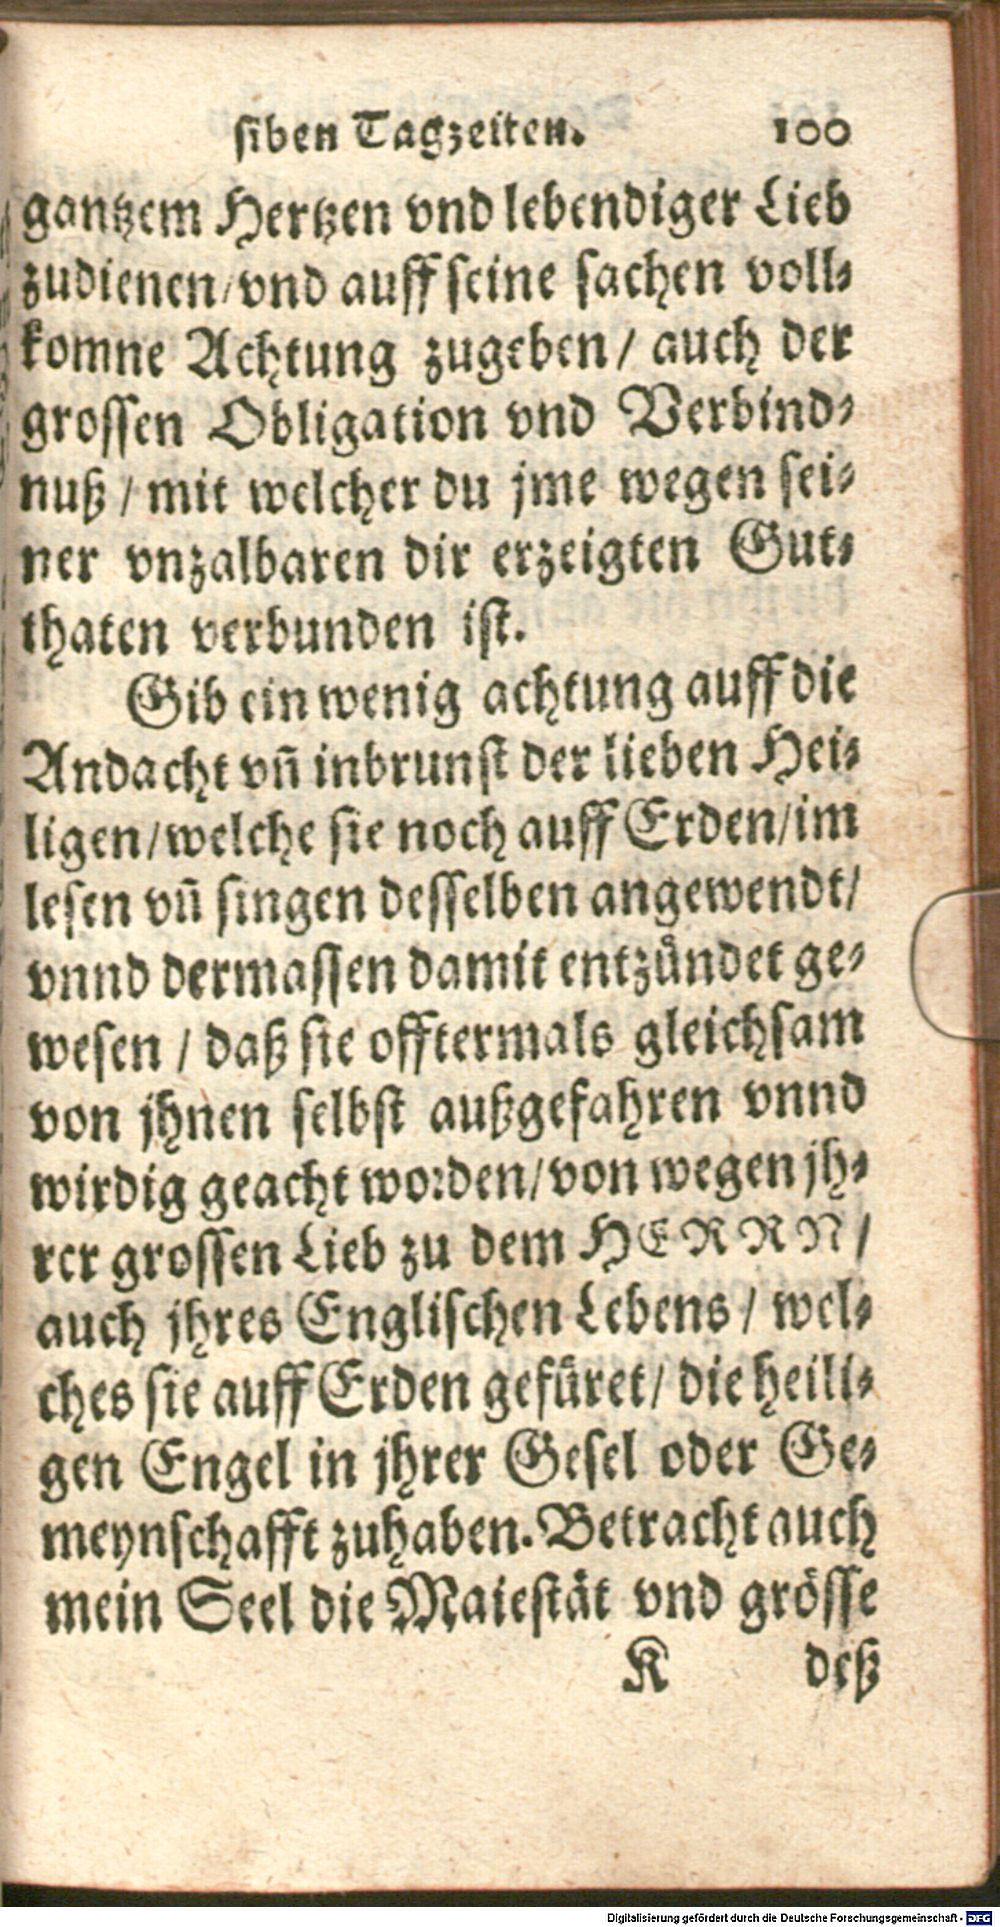 siben Tagzeiten. 100
gantzem Hertzen vnd lebendiger Lieb
zudienen/vnd auff seine sachen voll-
komne Achtung zugeben/ auch der
grossen Obligation vnd Verbind-
nuß / mit welcher du jme wegen sei-
ner vnzalbaren dir erzeigten Gut-
thaten verbunden ist.
Gib ein wenig achtung auff die
Andacht vñ inbrunst der lieben Hei-
ligen/welche sie noch auff Erden/im
lesen vñ singen desselben angewendt/
vnnd dermassen damit entzündet ge-
wesen / daß sie offtermals gleichsam
von jhnen selbst außgefahren vnnd
wirdig geacht worden/von wegen jh-
rer grossen Lieb zu dem HERRN/
auch jhres Englischen Lebens / wel-
ches sie auff Erden gefüret/ die heili-
gen Engel in jhrer Gesel oder Ge-
meynschafft zuhaben. Betracht auch
mein Seel die Maiestät vnd grösse
K deß
Digitalisierung gefördert durch die Deutsche Forschungsgemeinschaft - DFG